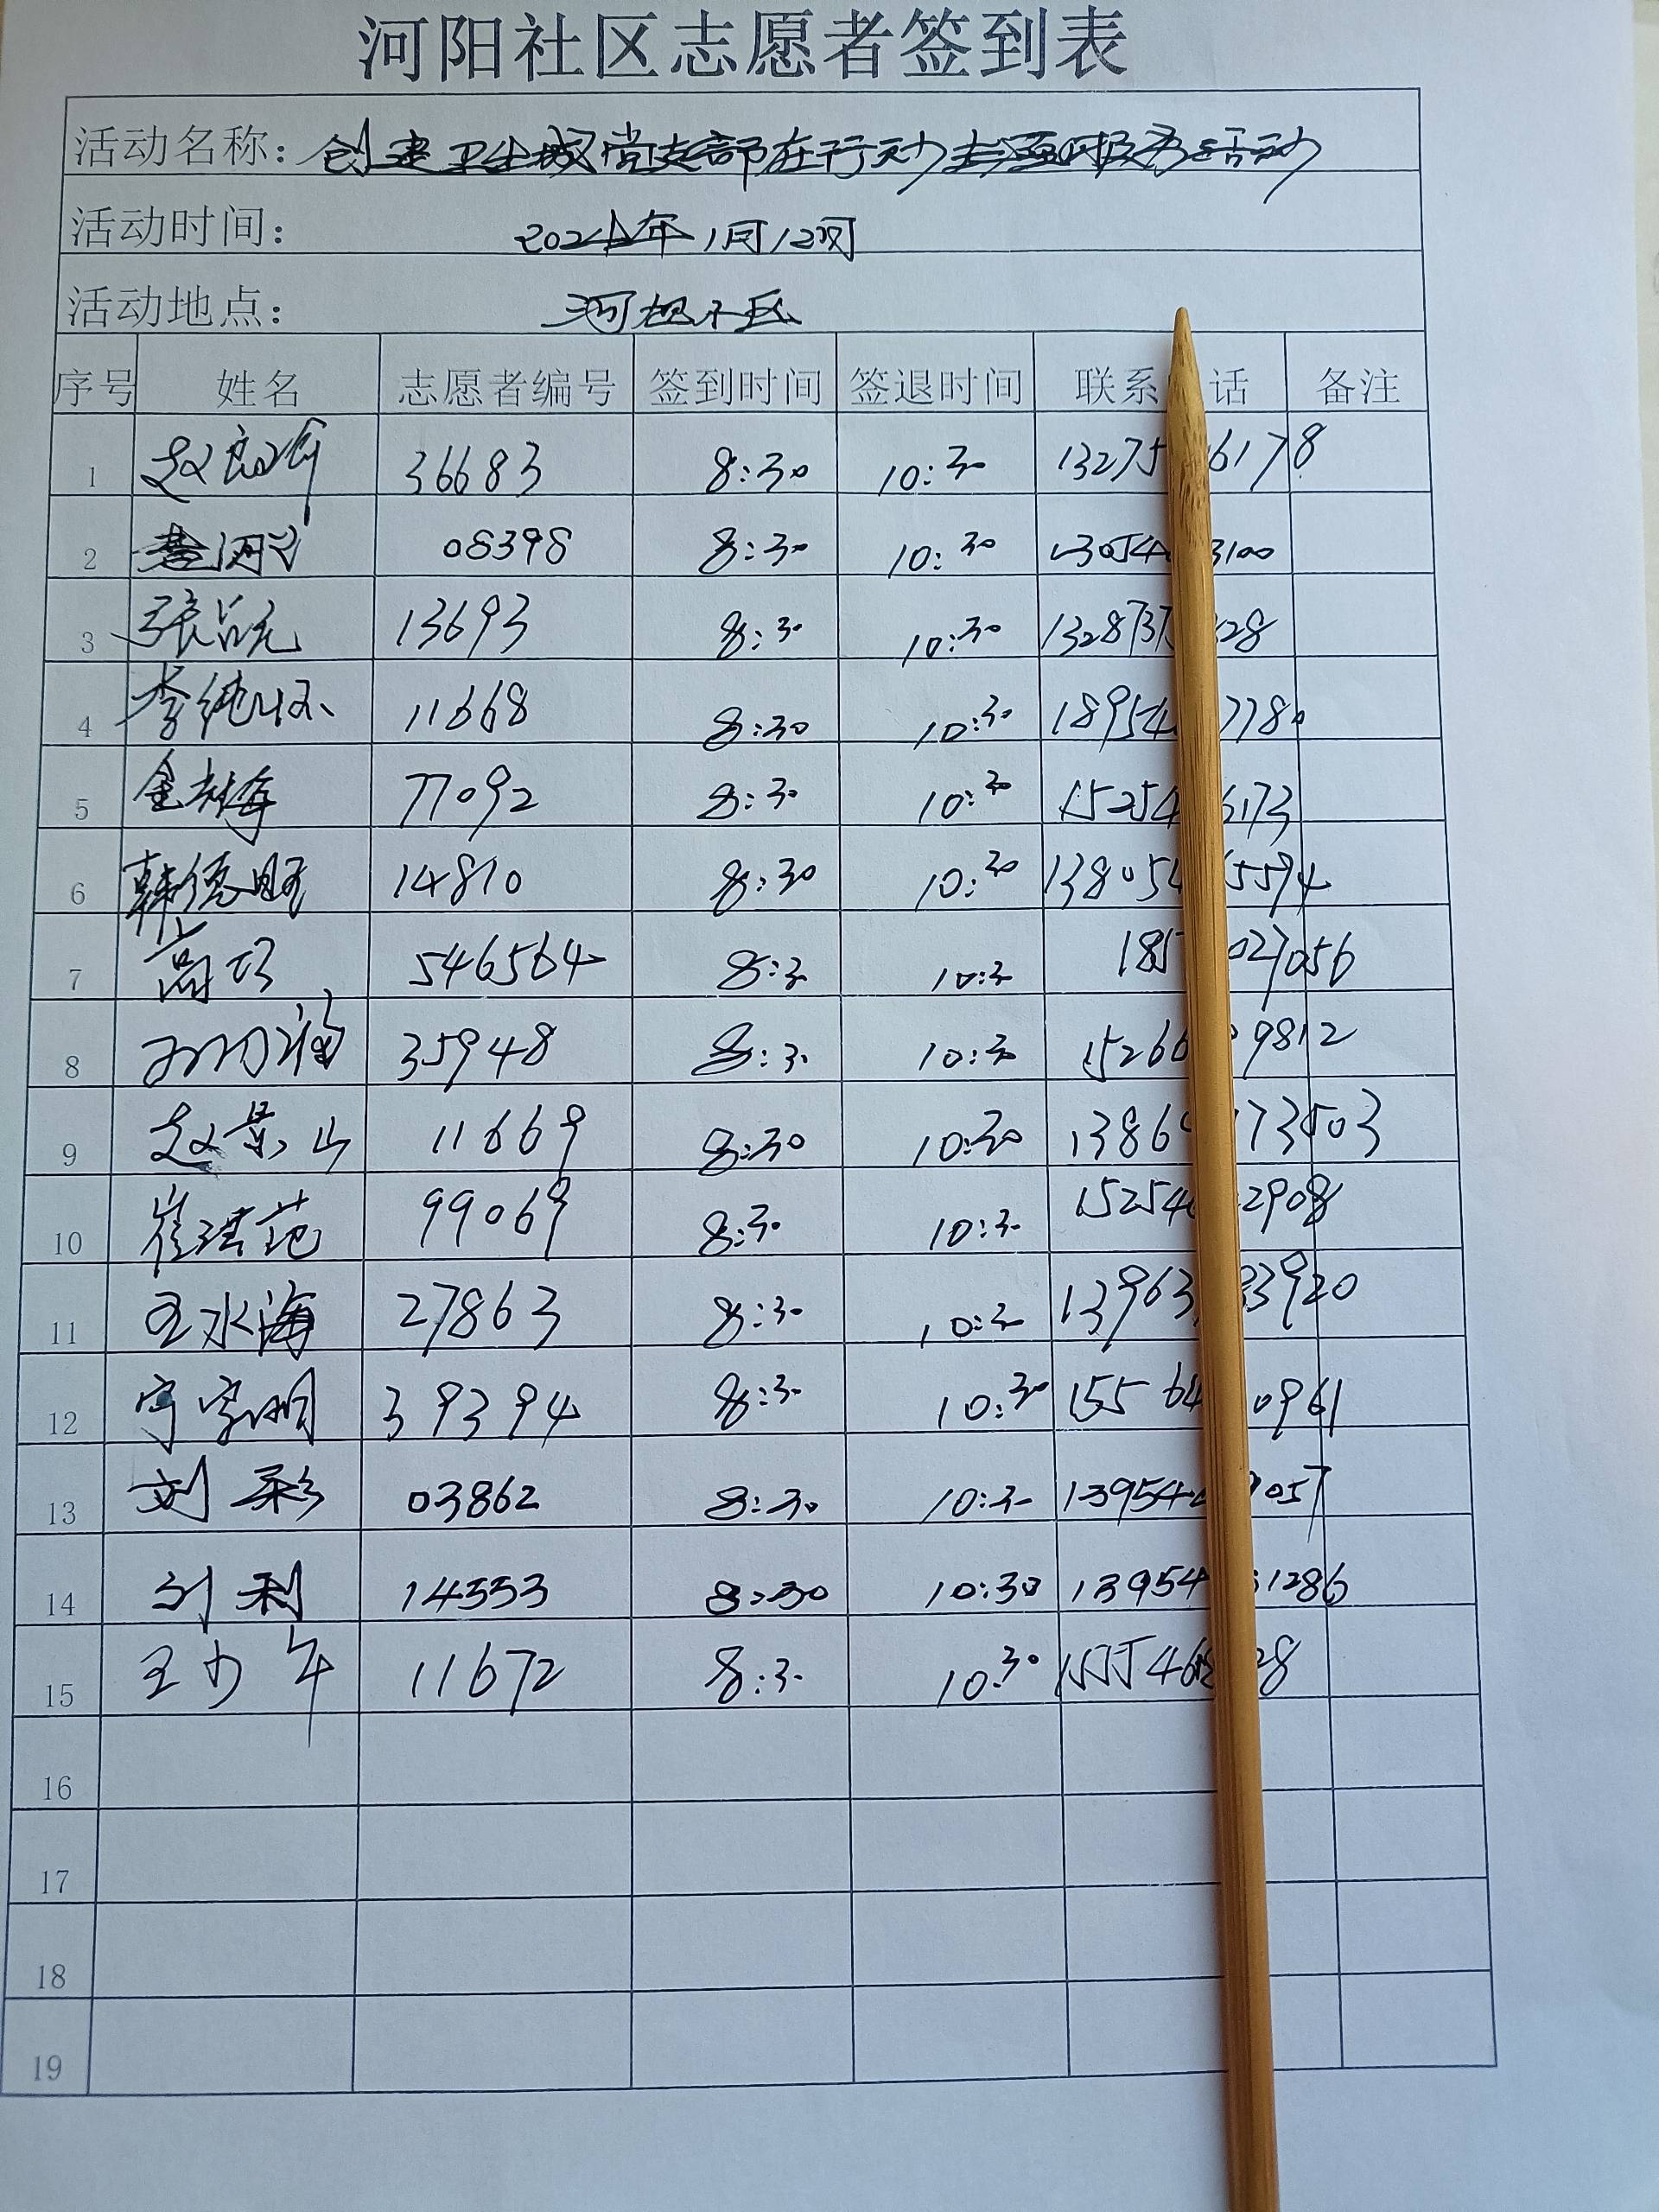 河阳社区志愿者签到表
活动名称: 创建卫生城党支部在行动志愿服务活动
活动时间: 年1月12日
活动地点: 河阳小区
序号 姓名 志愿者编号 签到时间 签退时间 联系 话 备注
1 赵 36683 8:30 10:30 13275 6178
2 08398 8:30 10:30 13054 3100
3 张 13693 8:30 10:30 13287 28
4 李纯 11668 8:30 10:30 18954 7780
5 金 梅 77092 8:30 10:30 15254 6173
6 韩德 14810 8:30 10:30 13805 5594
7 高巧 546564 8:30 10:30 185 027056
8 35948 8:30 10:30 15266 9812
9 赵景山 11669 8:30 10:30 1386 173503
10 崔 范 99069 8:30 10:30 15254 2908
11 王水海 27863 8:30 10:30 13963 3920
12 明 39394 8:30 10:30 15564 0961
13 刘彩 03862 8:30 10:30 13954 057
14 刘利 14553 8:30 10:30 13954 1286
15 王少午 11672 8:30 10:30 155546 28
16
17
18
19